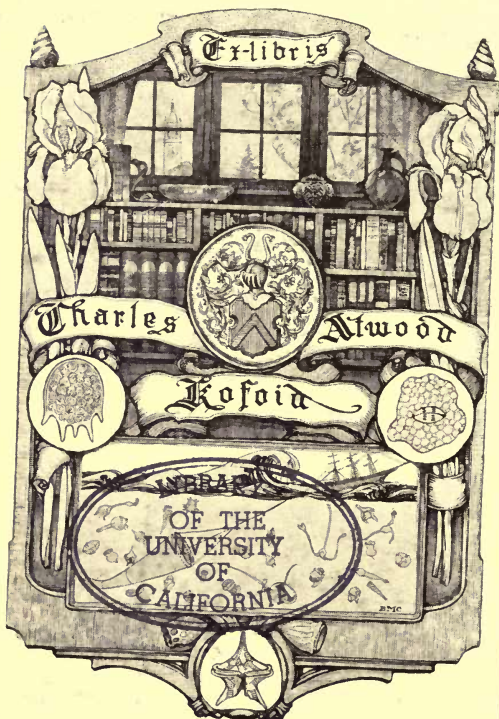 Ex-libris
Charles Atwood
Kofoid
LIBRARY
OF THE
UNIVERSITY
OF
CALIFORNIA
BMC